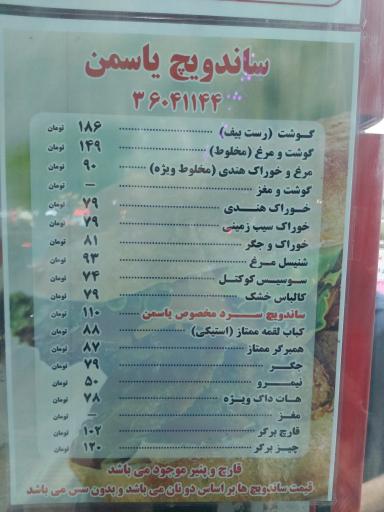 ساندویچ یاسمن
۳۶۰۴۱۱۴۴
گوشت (رست بیف) ۱۸۶ تومان
گوشت و مرغ (مخلوط) ۱۴۹ تومان
مرغ و خوراک هندی (مخلوط ویژه) ۹۰ تومان
گوشت و مغز – تومان
خوراک هندی ۷۹ تومان
خوراک سیب زمینی ۷۹ تومان
خوراک و جگر ۸۱ تومان
شنیسل مرغ ۹۳ تومان
سوسیس کوکتل ۷۴ تومان
کالباس خشک ۷۹ تومان
ساندویچ سرد مخصوص یاسمن ۱۱۰ تومان
کباب لقمه ممتاز (استیکی) ۸۸ تومان
همبرگر ممتاز ۸۷ تومان
جگر ۷۹ تومان
نیمرو ۵۰ تومان
هات داگ ویژه ۷۸ تومان
مغز – تومان
قارچ برگر ۱۰۲ تومان
چیز برگر ۱۲۰ تومان
قارچ و پنیر موجود می باشد
قیمت ساندویچ ها بر اساس دو نان می باشد و بدون سس می باشد